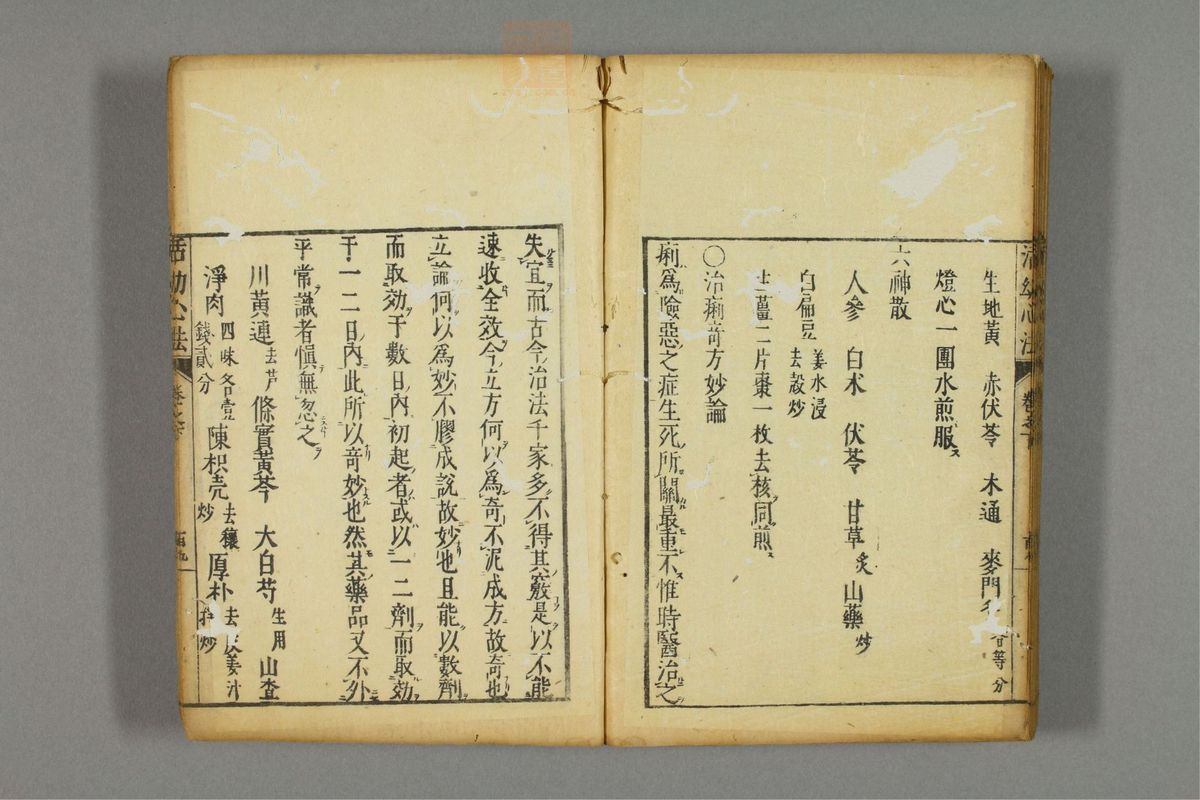 生地黃 赤伏苓 木通 麥門 等分
燈心一團水煎服ス
六神散
人參 白朮 伏苓 甘草炙 山藥炒
白扁豆姜水浸去殼炒
薑二片棗一枚去核同煎ス
○治痢竒方妙論
痢爲險惡之症生死所關最重不惟時醫治之
失宜而古今治法千家多不得其竅是以不能
速收全效今立方何以爲竒不泥成方故竒也
立論何以爲妙不膠成說故妙也且能以數劑
而取効于數日內初起者或以一二劑而取効
于一二日內此所以竒妙也然其藥品又不外
平常識者愼無忽之
川黃連去芦 條實黃芩 大白芍生用 山查
淨肉四味各壹錢貳分 陳枳壳去穰炒 厚朴去皮姜汁拌炒
活幼心法